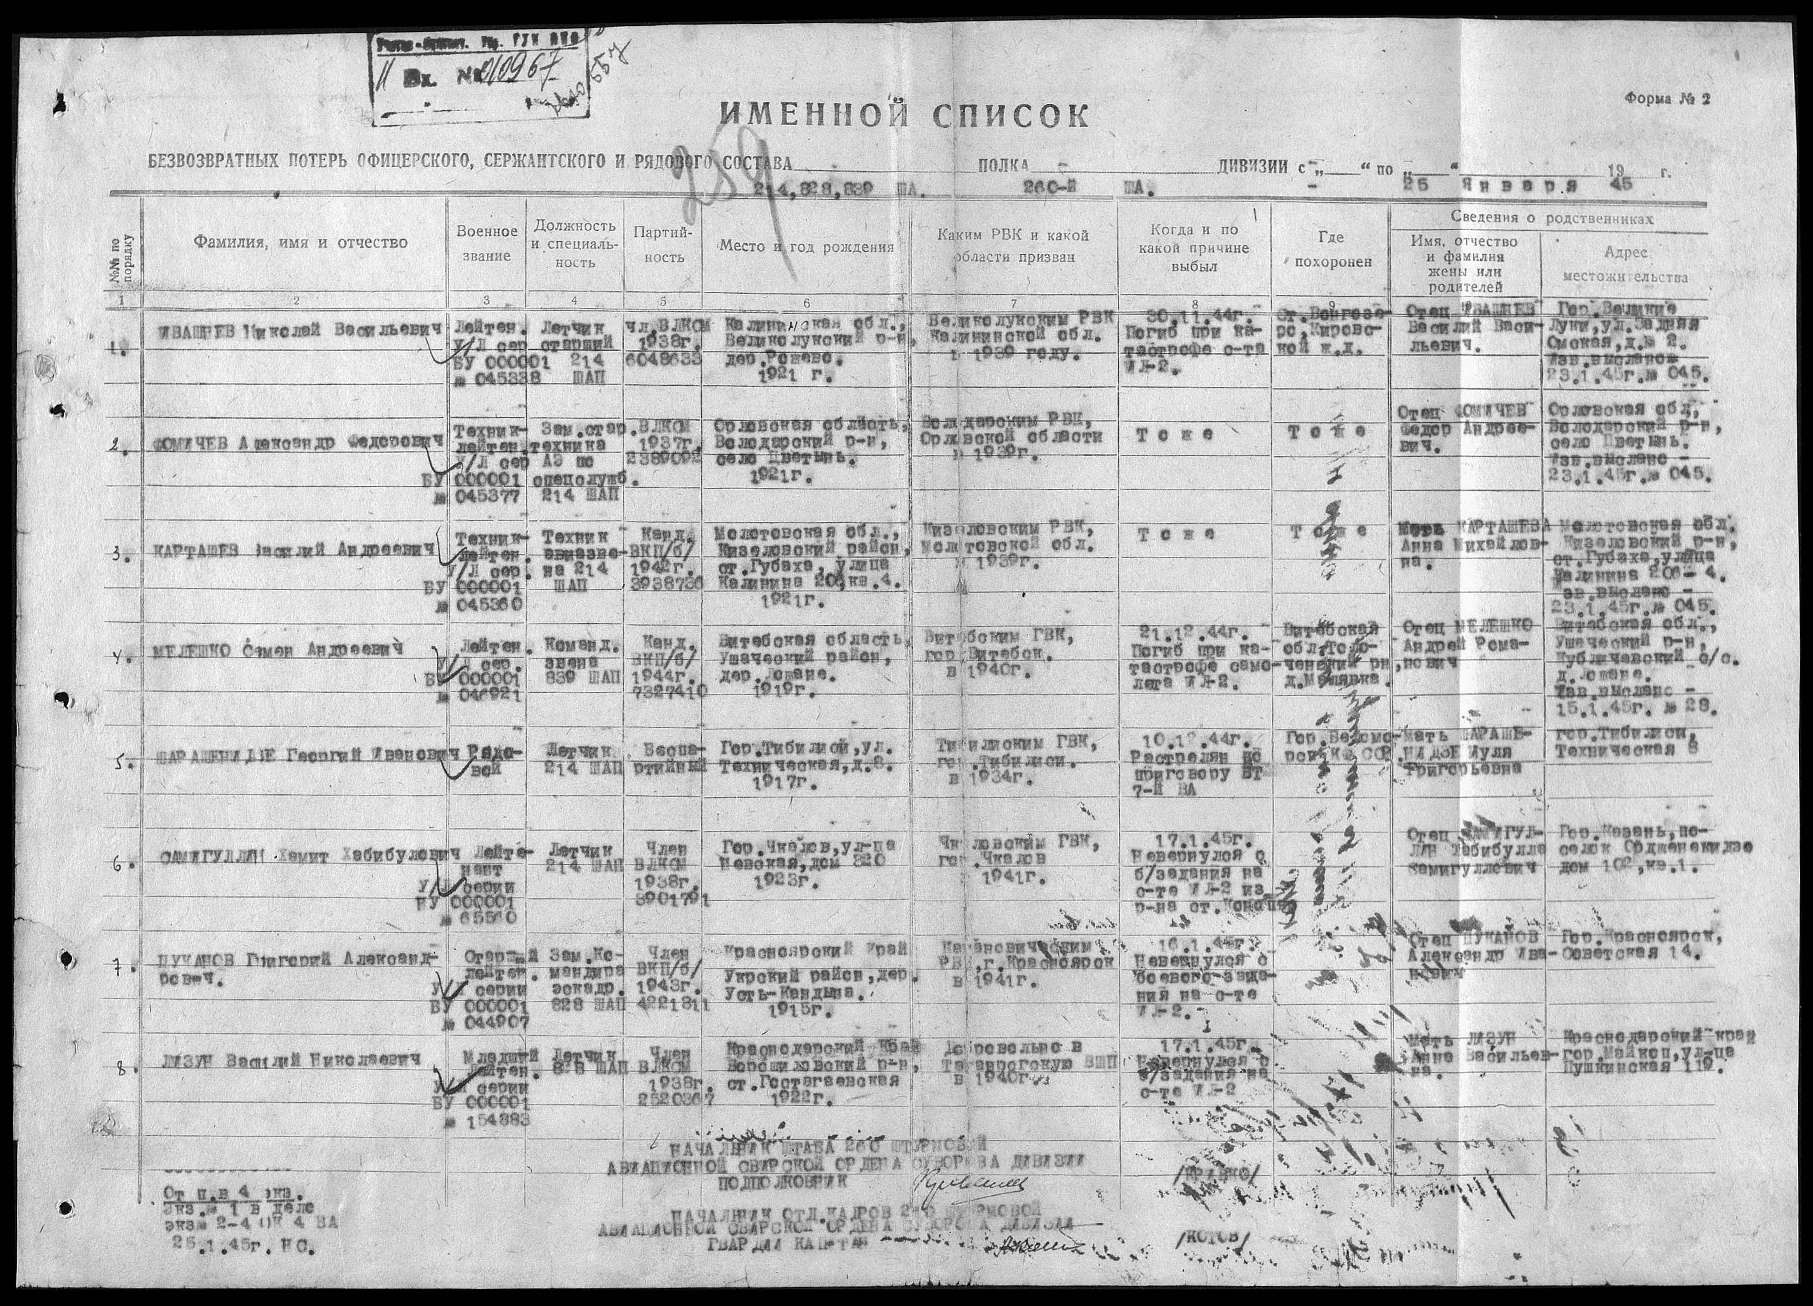 Вх. № 010967
Форма № 2
ИМЕННОЙ СПИСОК
259
БЕЗВОЗВРАТНЫХ ПОТЕРЬ ОФИЦЕРСКОГО, СЕРЖАНТСКОГО И РЯДОВОГО СОСТАВА ПОЛКА ДИВИЗИИ с „ “ по „ “ 19 г.
214,828,839 ША. 260-й ША. - 25 Января 45
№№ по порядку
Фамилия, имя и отчество
Военное звание
Должность и специаль-
ность
Партий-
ность
Место и год рождения
Каким РВК и какой области призван
Когда и по какой причине выбыл
Где похоронен
Сведения о родственниках
Имя, отчество и фамилия жены или родителей
Адрес местожительства
1 2 3 4 5 6 7 8 9
1.
ИВАШНЕВ Николай Васильевич
Лейтен.
У/Л сер
БУ 000001
№ 045338
Летчик
старший
214
ШАП
чл.ВЛКСМ
1938г.
6048633
Калининская обл.,
Великолукский р-н,
дер.
1921 г.
Великолукским РВК
Калининской обл.
в 1939 году.
30.11.44г.
Погиб при ка-
тастрофе с-та
ИЛ-2.
Кировс-
кой ж.д.
Отец ИВАШНЕВ
Василий Васи-
льевич.
Гор.Великие
Луки, ул.Задняя
Омская, д.№ 2.
Изв.выслано
23.1.45г.№ 045.
2.
ФОМИЧЕВ Александр Федорович
Техник-
лейтен.
У/Л сер
БУ 000001
№ 045377
Зам.стар.
техника
АЭ по
спецслужб.
214 ШАП
ВЛКСМ
1937г.
2389092
Орловская область,
Володарский р-н,
село Цветынь.
1921г.
Володарским РВК,
Орловской области
в 1939г.
Тоже
Тоже
Отец ФОМИЧЕВ
Федор Андрее-
вич.
Орловская обл,
Володарский р-н,
село Цветынь.
Изв.выслано -
23.1.45г.№ 045.
3.
КАРТАШЕВ Василий Андреевич
Техник-
лейтен.
У/Л сер.
БУ 000001
№ 045360
Техник
авиазве-
на 214
ШАП
Канд.
ВКП/б/
1942г.
3938736
Молотовская обл.,
Кизеловский район,
ст.Губаха, улица
Калинина 206,кв.4.
1921г.
Кизеловским РВК,
Молотовской обл.
в 1939г.
Тоже
Тоже
Мать КАРТАШЕВА
Анна Михайлов-
на.
Молотовская обл.
Кизеловский р-н,
ст.Губаха,улица
Калинина 206- 4.
Изв.выслано -
23.1.45г.№ 045.
4.
МЕЛЕШКО Семен Андреевич
Лейтен.
У/Л сер.
БУ 000001
№ 046921
Команд.
звена
839 ШАП
Канд.
ВКП/б/
1944г.
7327410
Витебская область,
Ушачский район,
1919г.
Витебским ГВК,
гор.Витебск.
в 1940г.
21.12.44г.
Погиб при ка-
тастрофе само-
лета ИЛ-2.
Витебская
обл.Толо-
ченский рн,
Отец МЕЛЕШКО
Андрей Рома-
нович
Витебская обл.,
Ушачский р-н,
Кубличевский с/с.
Изв.выслано -
15.1.45г. № 28.
5.
ШАРАШЕНИДЗЕ Георгий Иванович
Рядо-
вой
Летчик
214 ШАП
Беспа-
ртийный
Гор.Тибилиси,ул.
Техническая,д.8.
1917г.
Тибилиским ГВК,
гор.Тибилиси.
в 1934г.
10.12.44г.
Растрелян по
приговору ВТ
7-й ВА
Мать ШАРАШЕ-
НИДЗЕ Нуля
Григорьевна
гор.Тибилиси,
Техническая 8
6.
САМИГУЛЛИН Хамит Хабибулович
Лейте-
нант
У/Л серии
БУ 000001
№ 65560
Летчик
214 ШАП
Член
ВЛКСМ
1938г.
3901791
Гор.Чкалов,ул-ца
Невская,дом 820
1923г.
Чкаловским ГВК,
гор.Чкалов
в 1941г.
17.1.45г.
Невернулся с
б/задания на
с-те ИЛ-2 из
р-на ст.
Отец САМИГУЛ-
ЛИН Хабибулла
Замигуллович
Гор.Казань,по-
селок Орджоникидзе
дом 102,кв.1.
7.
ЦУКАНОВ Григорий Александ-
рович.
Старший
лейтен.
У/Л серии
БУ 000001
№ 044907
Зам.Ко-
мандира
эскадр.
828 ШАП
Член
ВКП/б/
1943г.
4221311
Красноярский край
район,дер.
1915г.
Кагановическим
РВК,г.Красноярск
в 1941г.
16.1.45г.
Невернулся с
боевого зада-
ния на с-те
ИЛ-2.
Отец ЦУКАНОВ
Александр Ива-
нович
Гор.Красноярск,
Советская 14.
8.
ЛИЗУН Василий Николаевич
Младший
лейтен.
У/Л серии
БУ 000001
№ 154383
Летчик
828 ШАП
Член
ВЛКСМ
1938г.
2520367
Краснодарский край
Ворошиловский р-н,
ст.Гостагаевская
1922г.
Добровольно в
Таганрогскую ВШП
в 1940г.
17.1.45г.
Невернулся с
б/задания на
с-те ИЛ-2
Мать ЛИЗУН
Анна Васильев-
на.
Краснодарский край
гор.Майкоп,ул-ца
Пушкинская 119.
НАЧАЛЬНИК ШТАБА 260 ШТУРМОВОЙ
АВИАЦИОННОЙ СВИРСКОЙ ОРДЕНА СУВОРОВА ДИВИЗИИ
ПОДПОЛКОВНИК
От п.в 4 экз.
Экз.№ 1 в дело
экз№ 2-4 ОК 4 ВА
25.1.45г. НС.
НАЧАЛЬНИК ОТД.КАДРОВ 260 ШТУРМОВОЙ
АВИАЦИОННОЙ СВИРСКОЙ ОРДЕНА СУВОРОВА ДИВИЗИИ
ГВАРДИИ КАПИТАН /КОТОВ/